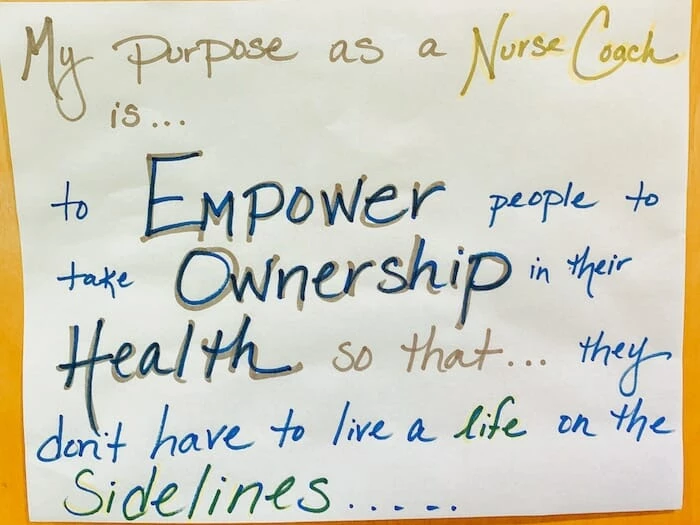 My Purpose as a Nurse Coach
is...
to Empower people to
take Ownership in their
Health so that... they
don't have to live a life on the
Sidelines.....